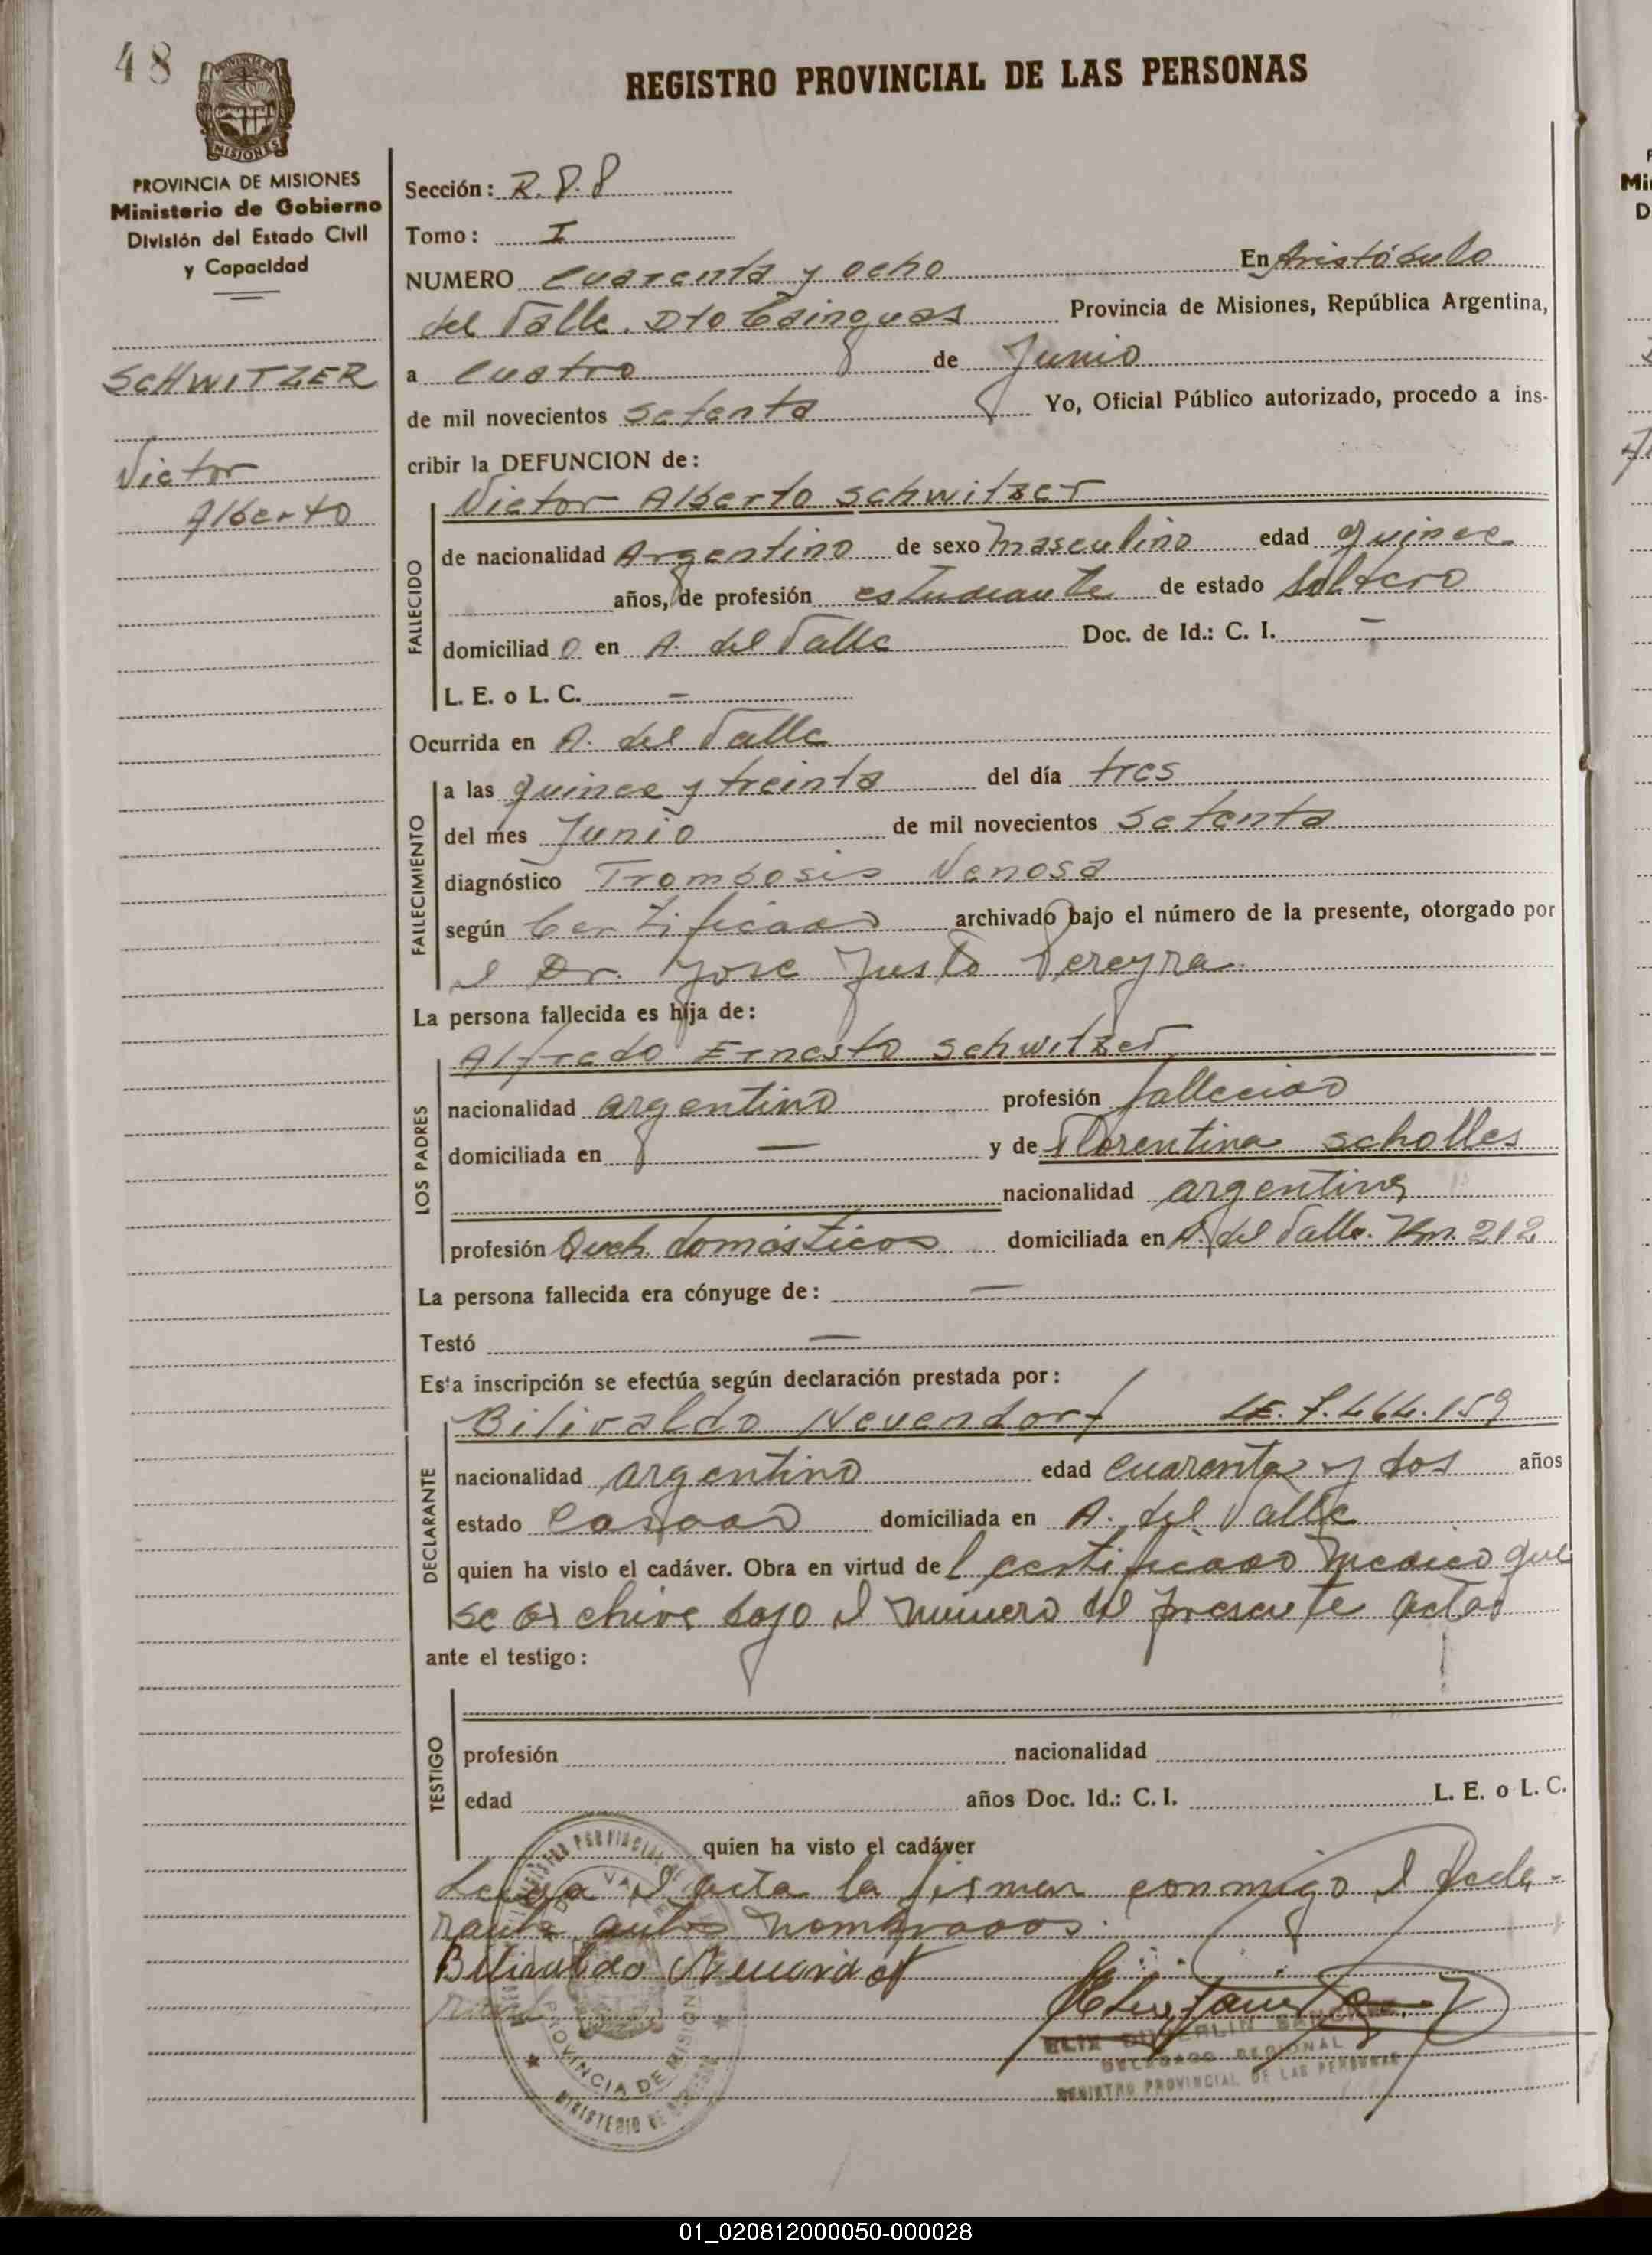 48
REGISTRO PROVINCIAL DE LAS PERSONAS
MISIONES
PROVINCIA DE MISIONES
Ministerio de Gobierno
División del Estado Civil
y Capacidad
SCHWITZER
Victor
Alberto
Sección: R.P.P
Tomo: I
NUMERO cuarenta y ocho En Aristóbulo
del Valle. Dto Cainguas Provincia de Misiones, República Argentina,
a cuatro de Junio
de mil novecientos setenta Yo, Oficial Público autorizado, procedo a ins-
cribir la DEFUNCION de:
FALLECIDO
Victor Alberto Schwitzer
de nacionalidad Argentino de sexo masculino edad quince
años, de profesión estudiante de estado soltero
domiciliad o en A. del Valle Doc. de Id.: C. I. -
L. E. o L. C. -
Ocurrida en A. del Valle
FALLECIMIENTO
a las quince y treinta del día tres
del mes Junio de mil novecientos setenta
diagnóstico Trombosis Venosa
según Certificado archivado bajo el número de la presente, otorgado por
el Dr. Jose Justo Pereyra.
La persona fallecida es hija de:
LOS PADRES
Alfredo Ernesto Schwitzer
nacionalidad argentino profesión fallecido
domiciliada en — y de Florentina Scholles
nacionalidad argentina
profesión Queh. domésticos domiciliada en A. del Valle. Km. 212
La persona fallecida era cónyuge de: —
Testó —
Esta inscripción se efectúa según declaración prestada por:
DECLARANTE
Bilivaldo Nevendorf LE. 7.464.159
nacionalidad argentino edad cuarenta y dos años
estado Casado domiciliada en A. del Valle
quien ha visto el cadáver. Obra en virtud de l certificado medico que
se archiva bajo el número del presente acta
ante el testigo:
TESTIGO
profesión nacionalidad
edad años Doc. Id.: C. I. L. E. o L. C.
quien ha visto el cadáver
Leida el acta la firman conmigo el decla-
rante antes nombrados.
Bilivaldo Nevendorf
DELEGADO REGIONAL
REGISTRO PROVINCIAL DE LAS PERSONAS
PROVINCIA DE MISIONES
01_020812000050-000028